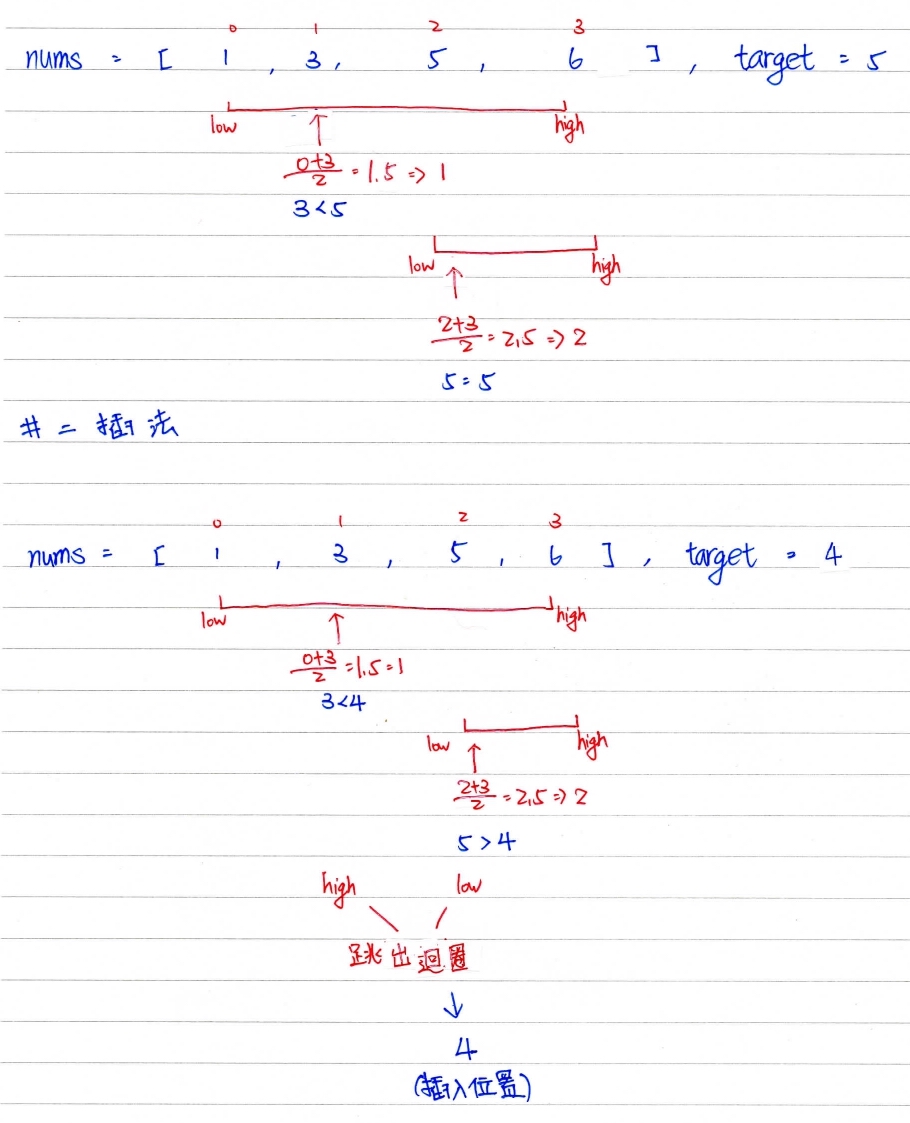 0 1 2 3
nums = [ 1 , 3 , 5 , 6 ] , target = 5
low high
0+3/2 = 1.5 => 1
3<5
low high
2+3/2 = 2.5 => 2
5 = 5
# 二插法
0 1 2 3
nums = [ 1 , 3 , 5 , 6 ] , target = 4
low high
0+3/2 = 1.5 = 1
3<4
low high
2+3/2 = 2.5 => 2
5 > 4
high low
跳出迴圈
4
(插入位置)